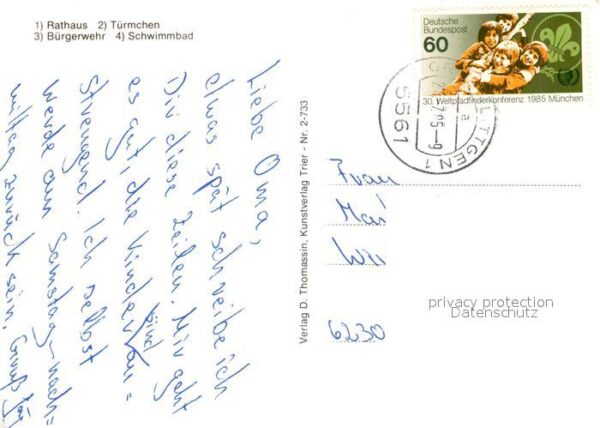 1) Rathaus 2) Türmchen
3) Bürgerwehr 4) Schwimmbad
Liebe Oma,
etwas spät schreibe ich
Dir diese Zeilen. Mir geht
es gut, die Kinder sind an=
strengend. Ich selbst
werde am Samstag-nach=
mittag zurück sein. Gruß
Verlag D. Thomassin, Kunstverlag Trier - Nr. 2-733
Deutsche
Bundespost
60
30. Weltpfadfinderkonferenz 1985 München
5561
Frau
6230
privacy protection
Datenschutz